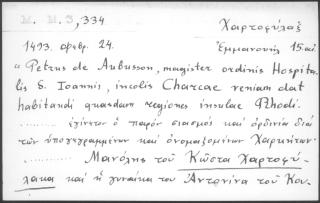 M. M. 3, 334 Χαρτοφύλαξ
1493. Φεβρ. 24. Ἐμμανουὴλ 15 αἰ.
"Petrus de Aubusson, magister ordinis Hospita-
lis S. Ioannis, incolis Charcae veniam dat
habitandi quasdam regiones insulae Rhodi.
......... ἐγίνετον ὁ παρὸν σιασμὸς καὶ ὀρδινία διὰ
τῶν ὑπογεγραμμένων καὶ ὀνομαζομένων Χαρκητῶν
.......... Μανόλης τοῦ Κώστα Χαρτοφύ-
λακα καὶ ἡ γυναίκα του Ἀντωνίνα τοῦ Κον-